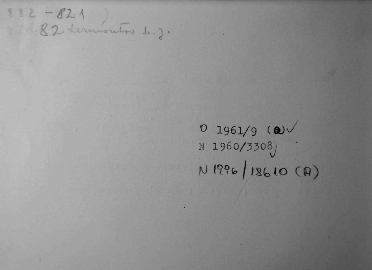 882-821)
82 Lermontov M. J.
D 1961/9 (a) ✓
N 1960/3308 ✓
N 1996/18610 (A)